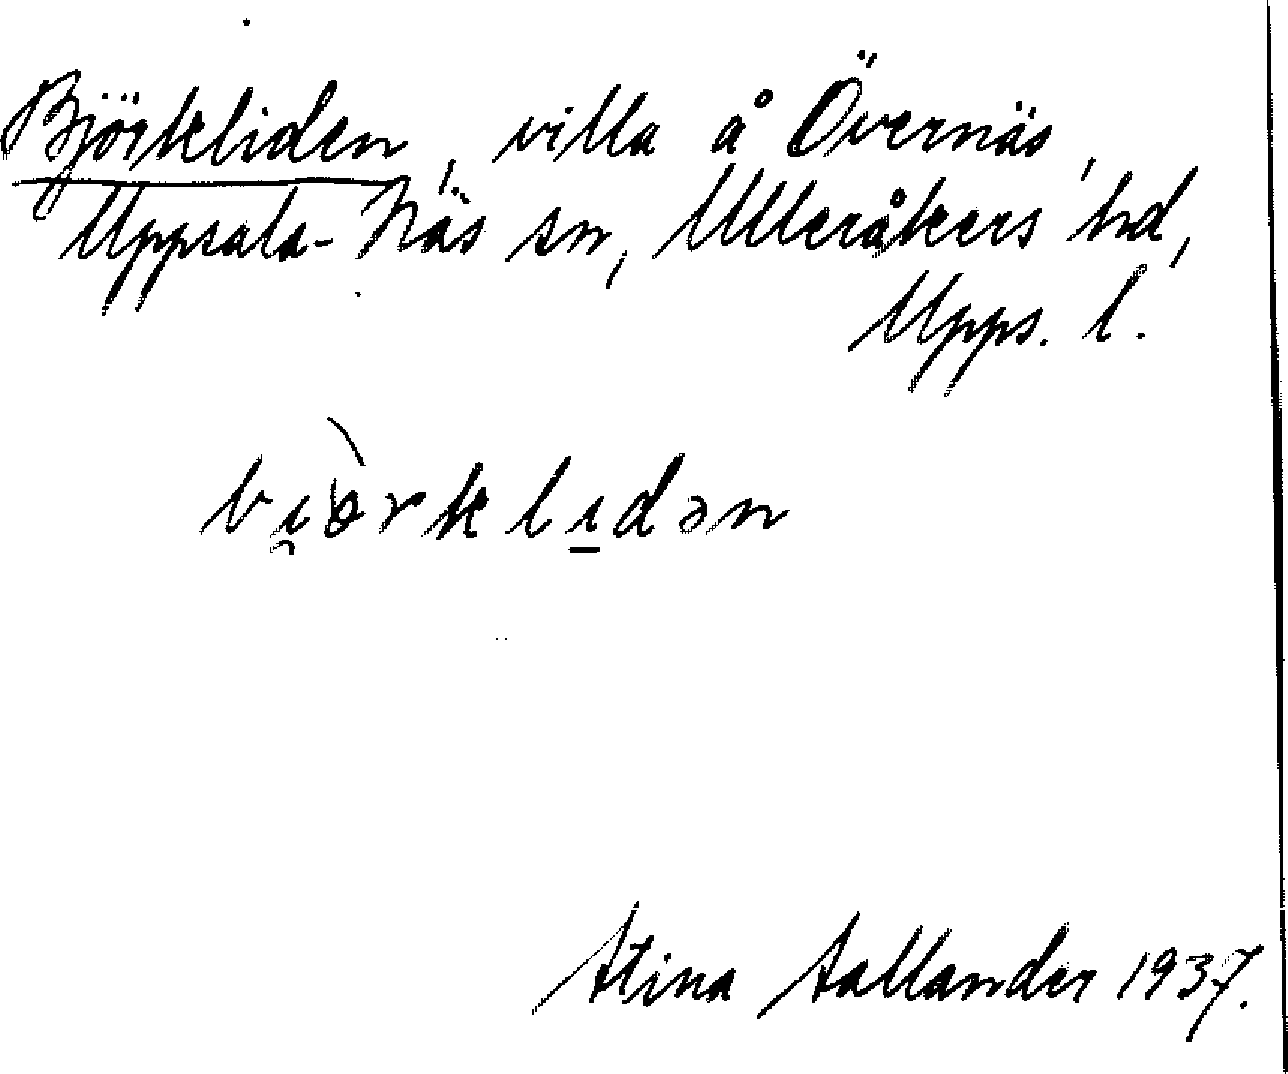 Björkliden, villa å Övernäs,
Uppsala-Näs sn, Ulleråkers hd,
Upps. l.
bi̯ò̤rklı̱dən
Stina Sallander 1937.